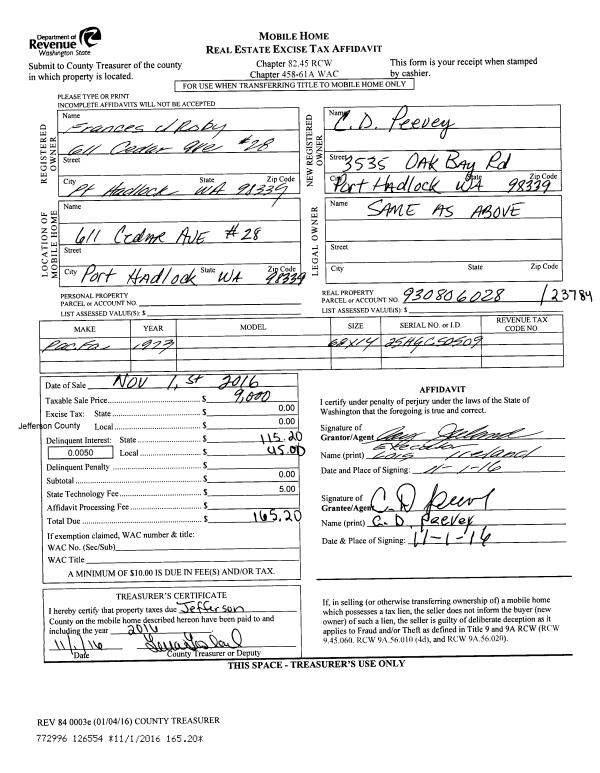 Department of
Revenue
Washington State
MOBILE HOME
REAL ESTATE EXCISE TAX AFFIDAVIT
Submit to County Treasurer of the county
in which property is located.
Chapter 82.45 RCW
Chapter 458-61A WAC
This form is your receipt when stamped
by cashier.
FOR USE WHEN TRANSFERRING TITLE TO MOBILE HOME ONLY
PLEASE TYPE OR PRINT
INCOMPLETE AFFIDAVITS WILL NOT BE ACCEPTED
REGISTERED OWNER
Name
Frances J Roby
611 Cedar Ave #28
Street
City State Zip Code
Pt Hadlock WA 98339
NEW REGISTERED OWNER
Name
C. D. Peevey
Street 3535 OAK BAY Rd
City State Zip Code
Port HADLOCK WA 98339
LOCATION OF MOBILE HOME
Name
611 Cedar AVE #28
Street
City Port HADLOCK State WA Zip Code 98339
LEGAL OWNER
Name
SAME AS ABOVE
Street
City State Zip Code
PERSONAL PROPERTY
PARCEL or ACCOUNT NO.
LIST ASSESSED VALUE(S): $
REAL PROPERTY
PARCEL or ACCOUNT NO. 930806028 /23784
LIST ASSESSED VALUE(S): $
MAKE YEAR MODEL SIZE SERIAL NO. or I.D. REVENUE TAX CODE NO.
1973 68X14
Date of Sale Nov 1, st 2016
Taxable Sale Price $ 9,000
Excise Tax: State $ 0.00
Jefferson County Local $ 0.00
Delinquent Interest: State $ 115.20
0.0050 Local $ 45.00
Delinquent Penalty $
Subtotal $ 0.00
State Technology Fee $ 5.00
Affidavit Processing Fee $
Total Due $ 165.20
If exemption claimed, WAC number & title:
WAC No. (Sec/Sub)
WAC Title
A MINIMUM OF $10.00 IS DUE IN FEE(S) AND/OR TAX.
AFFIDAVIT
I certify under penalty of perjury under the laws of the State of
Washington that the foregoing is true and correct.
Signature of
Grantor/Agent
Executor
Name (print) Lois Ireland
Date and Place of Signing: 11-1-16
Signature of
Grantee/Agent C D Peevey
Name (print) C. D. Peevey
Date & Place of Signing: 11-1-16
TREASURER'S CERTIFICATE
I hereby certify that property taxes due Jefferson
County on the mobile home described hereon have been paid to and
including the year 2016
11/1/16
Date County Treasurer or Deputy
If, in selling (or otherwise transferring ownership of) a mobile home
which possesses a tax lien, the seller does not inform the buyer (new
owner) of such a lien, the seller is guilty of deliberate deception as it
applies to Fraud and/or Theft as defined in Title 9 and 9A RCW (RCW
9.45.060, RCW 9A.56.010 (4d), and RCW 9A.56.020).
THIS SPACE - TREASURER'S USE ONLY
REV 84 0003e (01/04/16) COUNTY TREASURER
772996 126554 *11/1/2016 165.20*